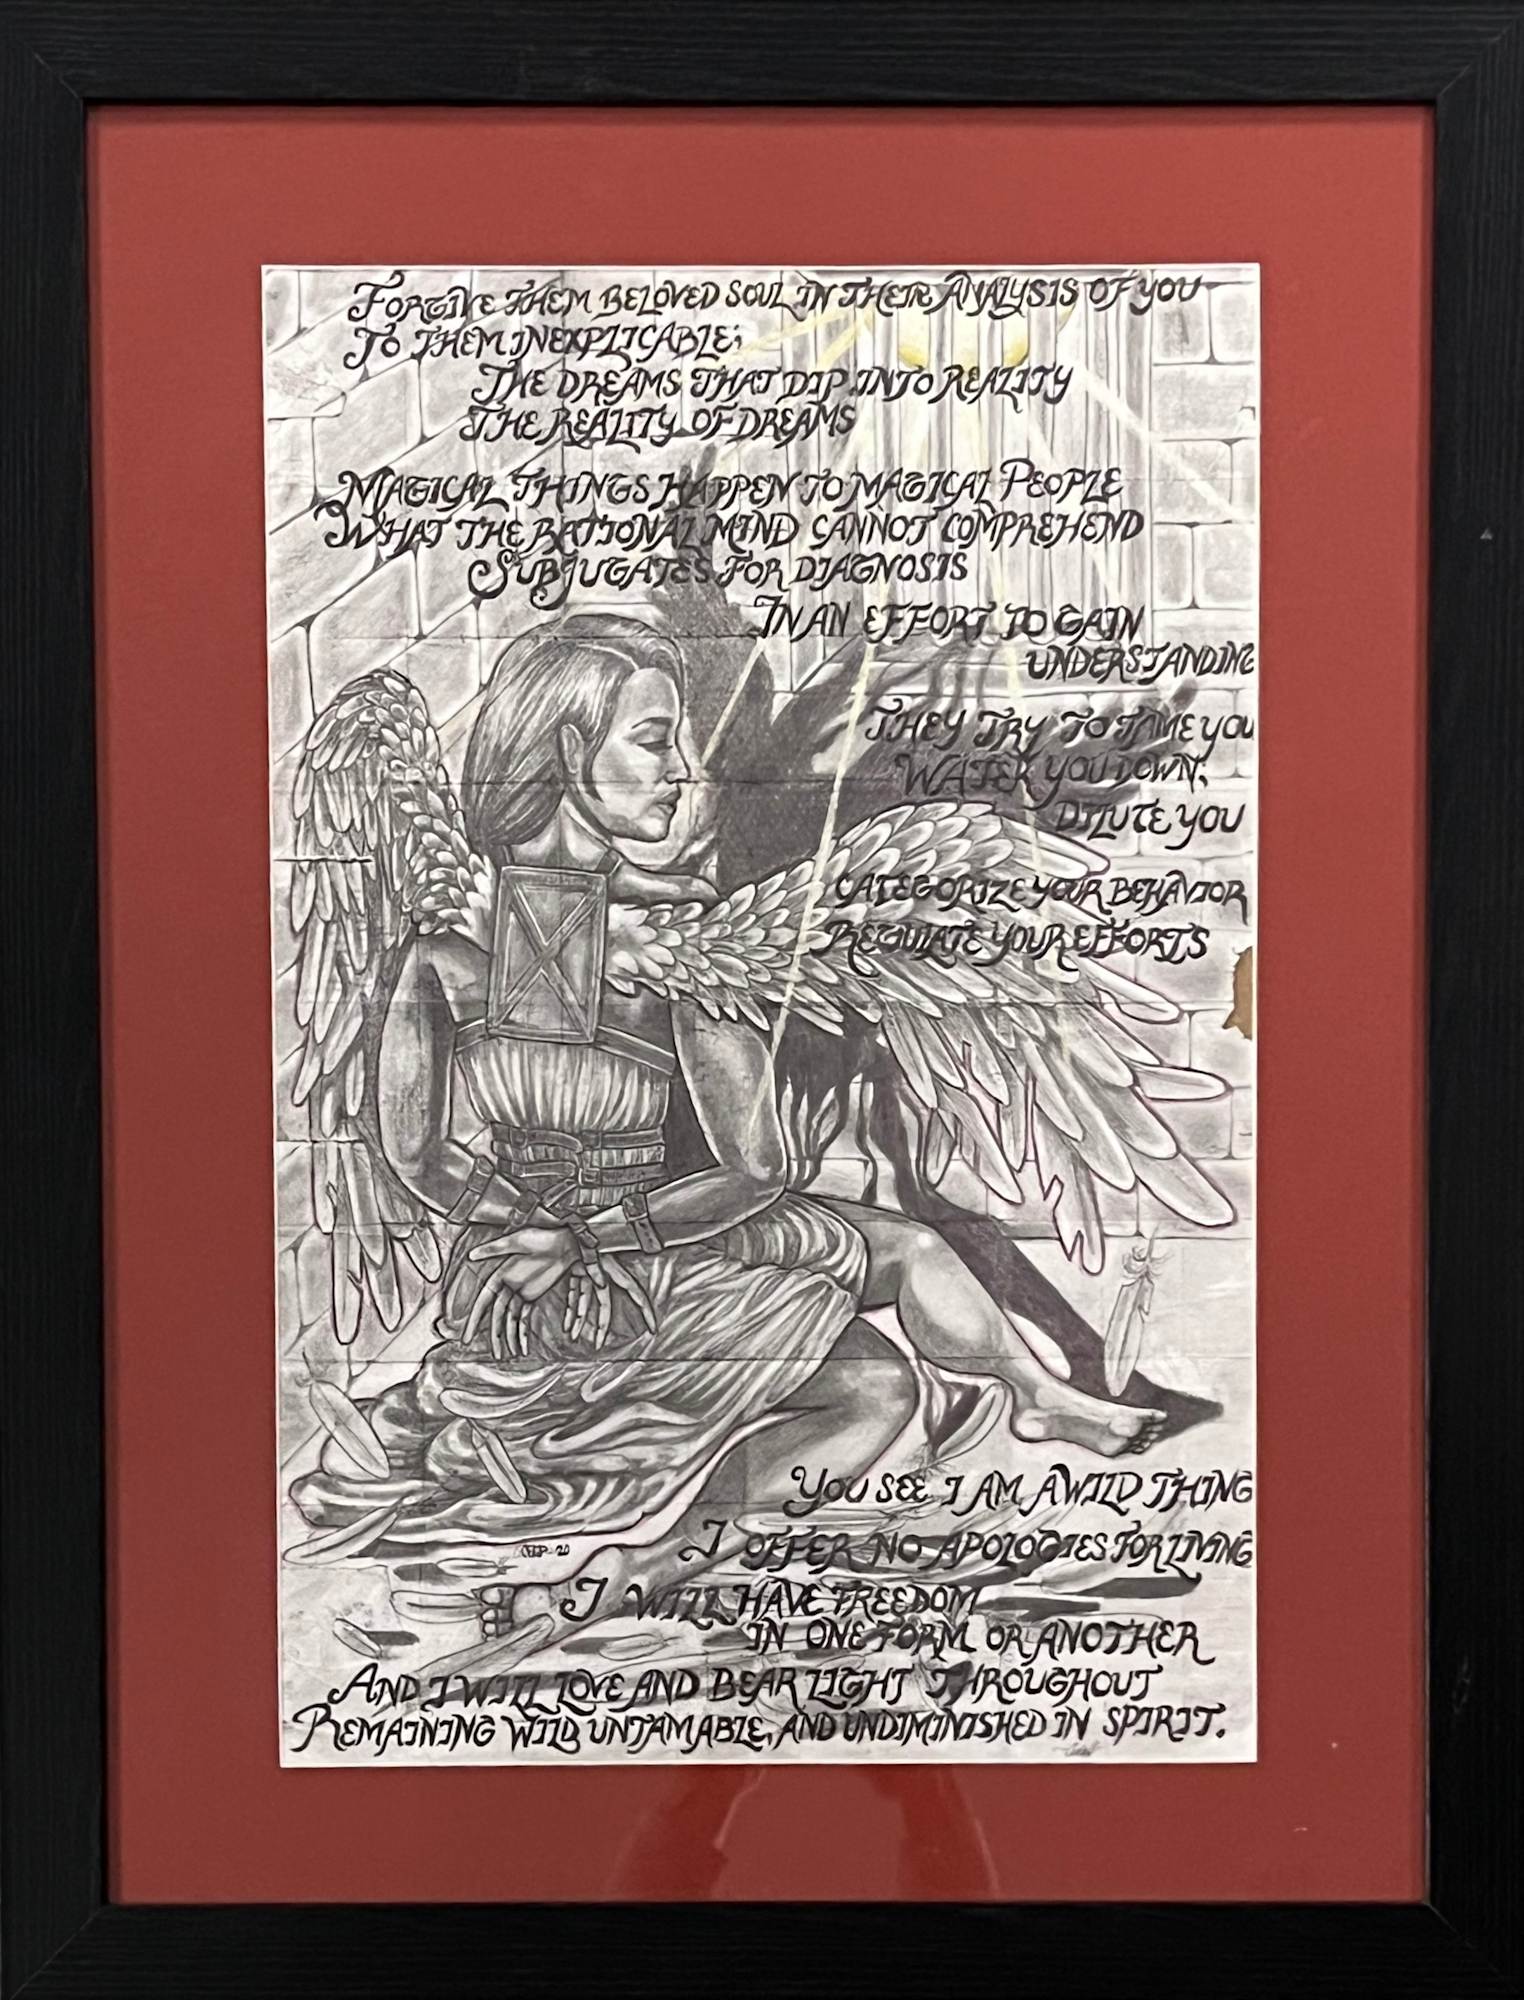 Forgive them beloved soul in their Analysis of you
To them inexplicable;
The dreams that dip into reality
The reality of dreams
Magical things happen to magical People
What the rational mind cannot comprehend
Subjugates for diagnosis
In an effort to gain
understanding
They try to tame you
Water you down;
Dilute you
Categorize your behavior
Regulate your efforts
You see I am a wild thing
I offer no apologies for living
I will have freedom
in one form or another
And I will love and bear light throughout
Remaining wild, untamable, and undiminished in spirit.